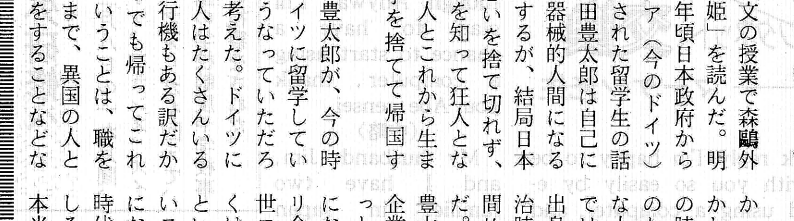 文の授業で森鷗外
姫」を読んだ。明
年頃日本政府から
ア（今のドイツ）
された留学生の話
田豊太郎は自己に
器械的人間になる
するが、結局日本
いを捨て切れず、
を知って狂人とな
人とこれから生ま
を捨てて帰国す
豊太郎が、今の時
イツに留学してい
うなっていただろ
考えた。ドイツに
人はたくさんいる
行機もある訳だか
でも帰ってこれ
いうことは、職を
まで、異国の人と
をすることなどな
か
の時
な
では
治時
だ。
企業
時代
本当